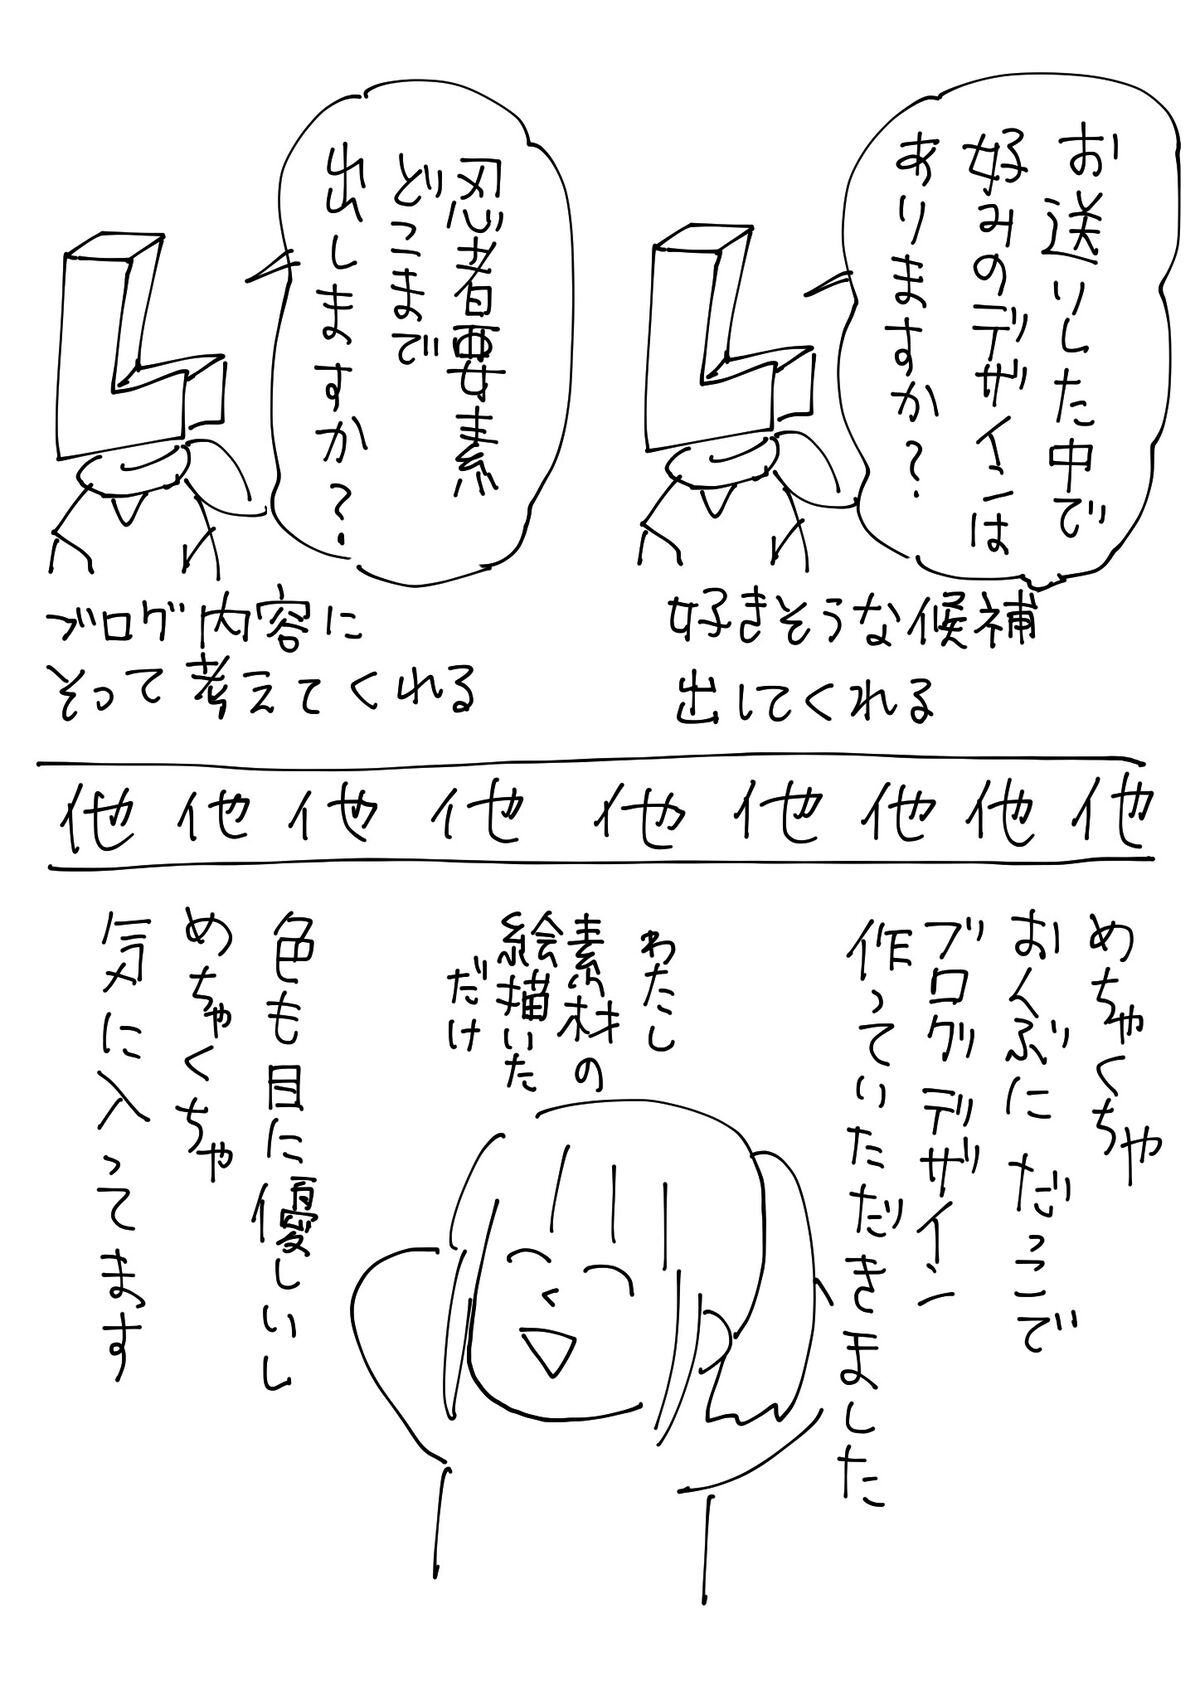 お送りした中で
好みのデザインは
ありますか?
好きそうな候補
出してくれる
忍者要素
どこまで
出しますか?
ブログ内容に
そって考えてくれる
他他他他他他他他他
めちゃくちゃ
おんぶにだっこで
ブログデザイン
作っていただきました
わたし
素材の
絵描いた
だけ
色も目に優しいし
めちゃくちゃ
気に入ってます